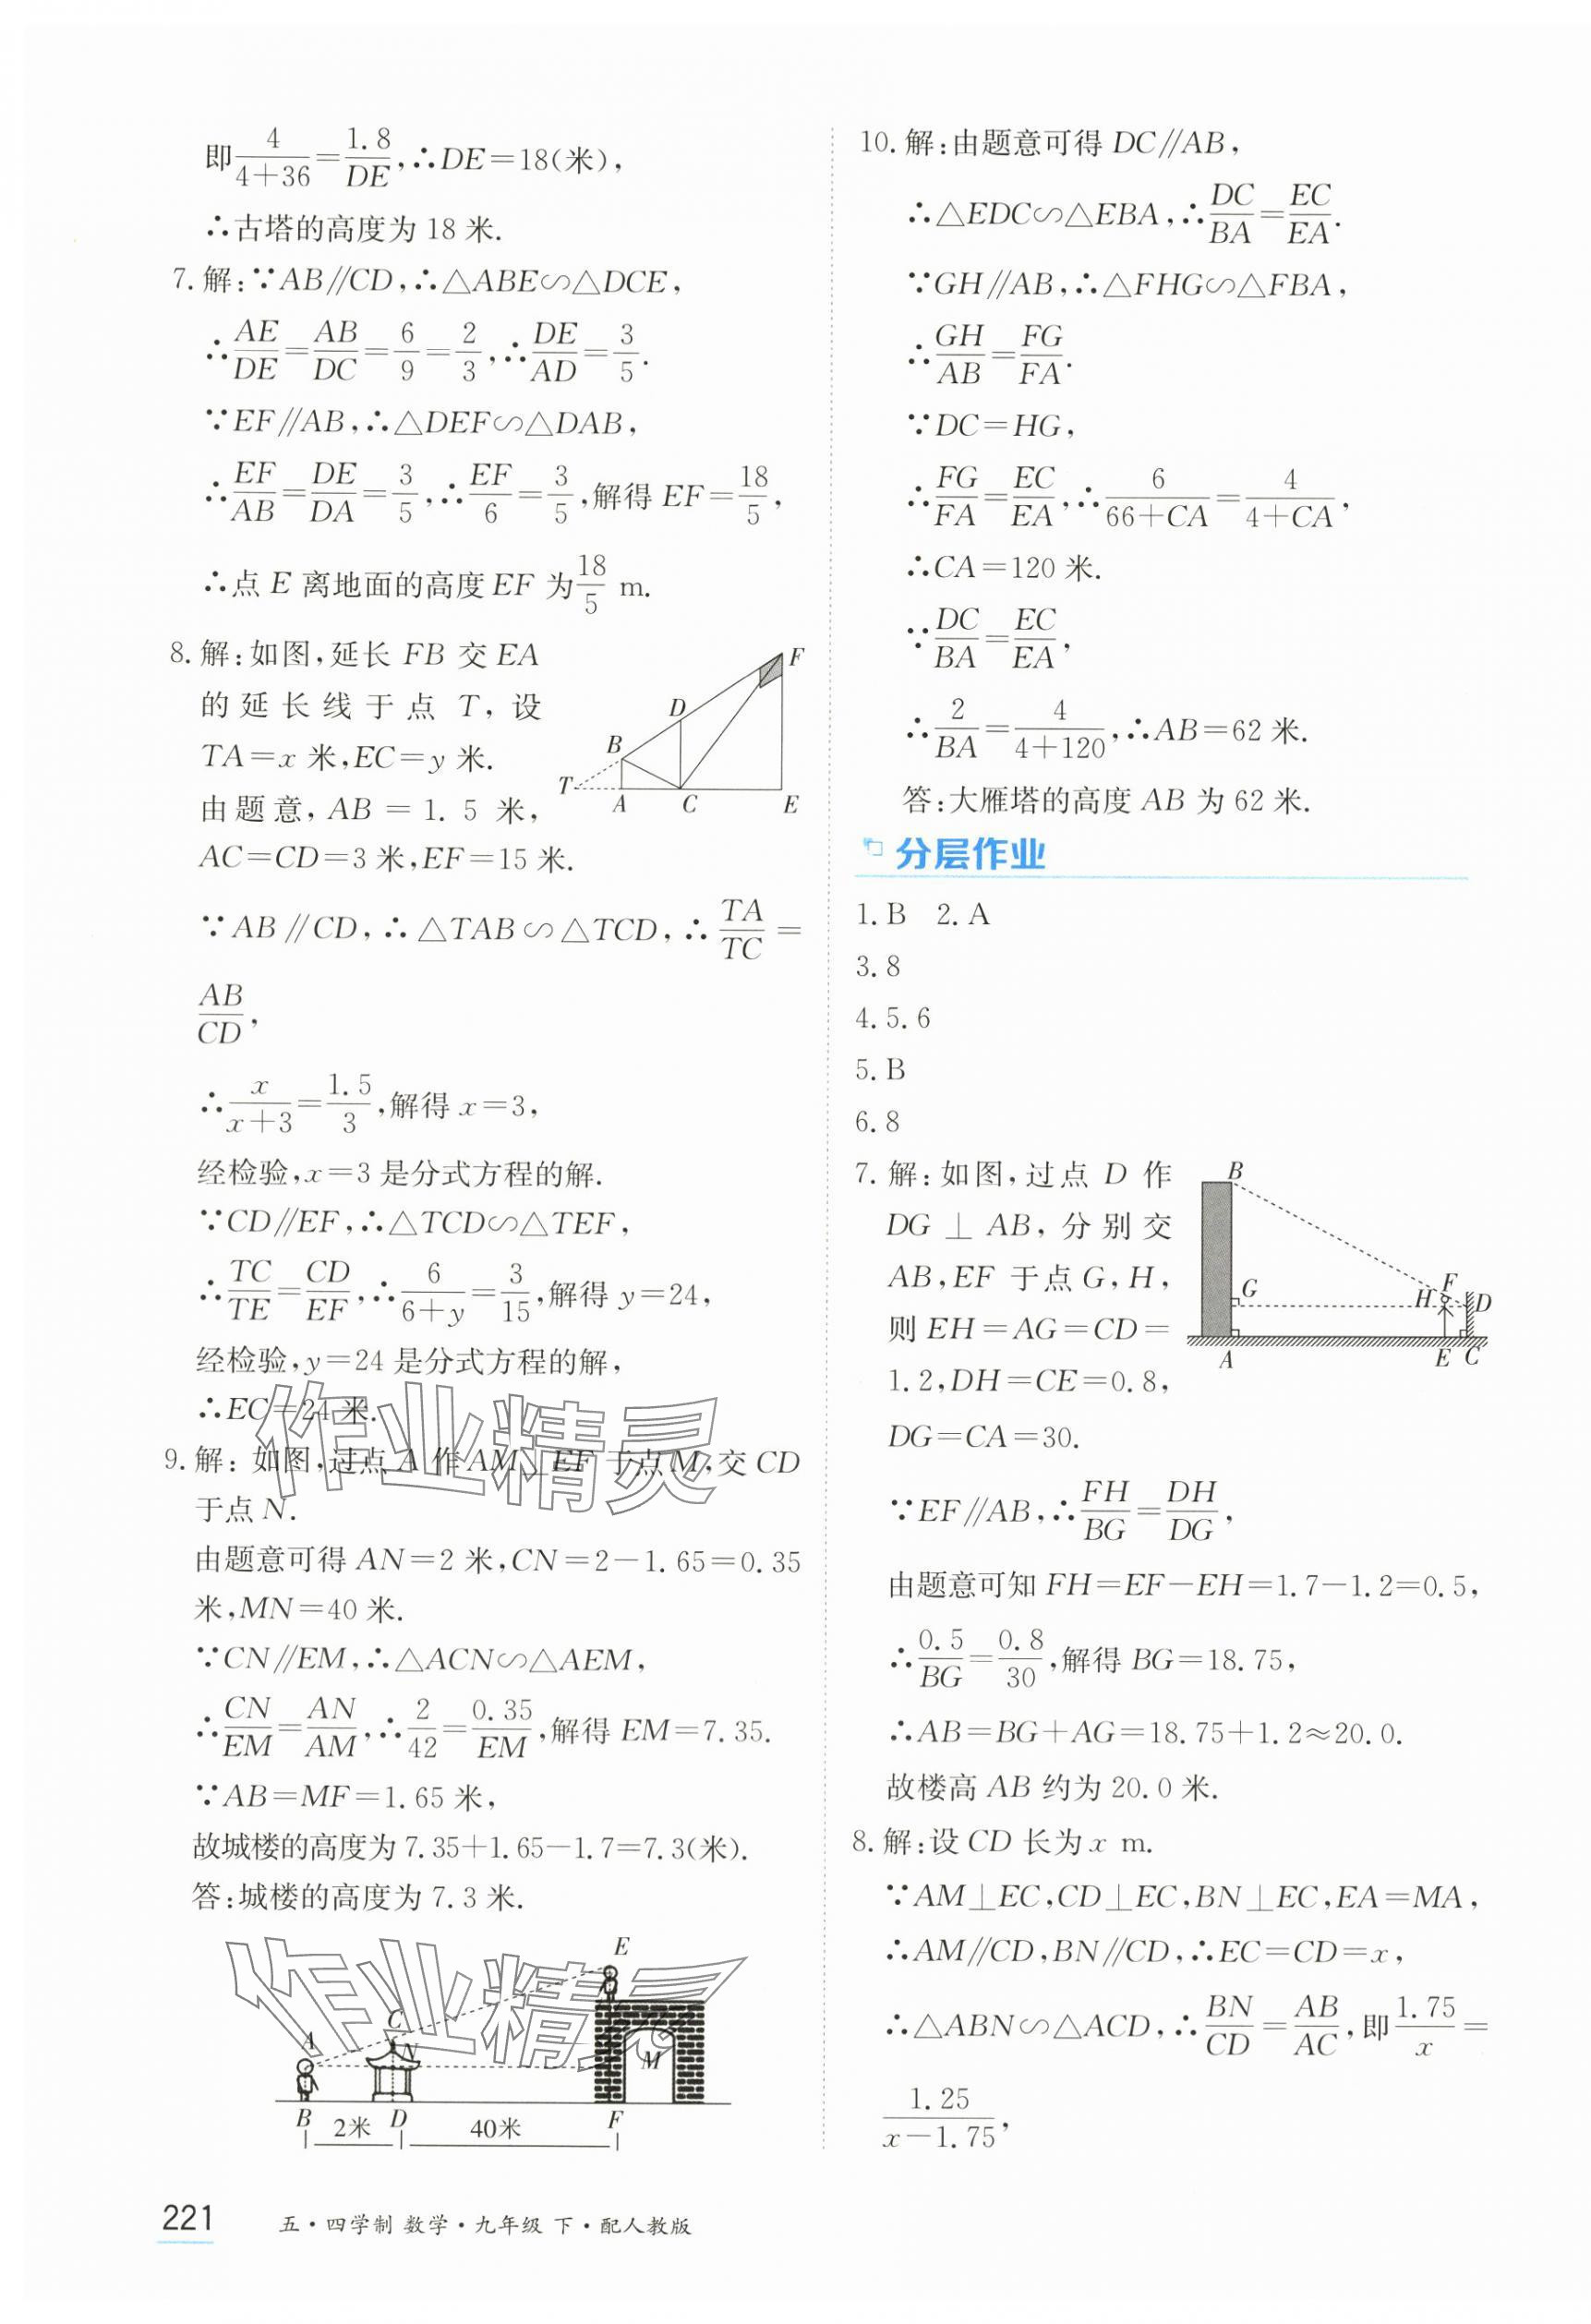 即4/(4+36)=1.8/DE,∴DE=18(米),
∴古塔的高度为 18 米.
7.解:∵AB∥CD,∴△ABE∽△DCE,
∴AE/DE=AB/DC=6/9=2/3,∴DE/AD=3/5.
∵EF∥AB,∴△DEF∽△DAB,
∴EF/AB=DE/DA=3/5,∴EF/6=3/5,解得 EF=18/5,
∴点 E 离地面的高度 EF 为18/5 m.
8.解:如图,延长 FB 交 EA
的延长线于点 T,设
TA=x 米,EC=y 米.
由题意,AB=1.5 米,
AC=CD=3 米,EF=15 米.
F
D
B
T
A
C
E
∵AB∥CD,∴△TAB∽△TCD,∴TA/TC=
AB/CD,
∴x/(x+3)=1.5/3,解得 x=3,
经检验,x=3 是分式方程的解.
∵CD∥EF,∴△TCD∽△TEF,
∴TC/TE=CD/EF,∴6/(6+y)=3/15,解得 y=24,
经检验,y=24 是分式方程的解,
∴EC=24 米.
作业精灵
9.解:如图,过点 A 作 AM⊥EF 于点 M,交 CD
于点 N.
由题意可得 AN=2 米,CN=2-1.65=0.35
米,MN=40 米.
∵CN∥EM,∴△ACN∽△AEM,
∴CN/EM=AN/AM,∴2/42=0.35/EM,解得 EM=7.35.
∵AB=MF=1.65 米,
故城楼的高度为 7.35+1.65-1.7=7.3(米).
答:城楼的高度为 7.3 米.
作业精灵
E
C
A
N
M
B
2米
D
40米
F
10.解:由题意可得 DC∥AB,
∴△EDC∽△EBA,∴DC/BA=EC/EA.
∵GH∥AB,∴△FHG∽△FBA,
∴GH/AB=FG/FA.
∵DC=HG,
∴FG/FA=EC/EA,∴6/(66+CA)=4/(4+CA),
∴CA=120 米.
∵DC/BA=EC/EA,
∴2/BA=4/(4+120),∴AB=62 米.
答:大雁塔的高度 AB 为 62 米.
分层作业
1.B 2.A
3.8
4.5.6
5.B
6.8
7.解:如图,过点 D 作
DG⊥AB,分别交
AB,EF 于点 G,H,
则 EH=AG=CD=
1.2,DH=CE=0.8,
DG=CA=30.
B
G
F
H
D
A
E
C
∵EF∥AB,∴FH/BG=DH/DG,
由题意可知 FH=EF-EH=1.7-1.2=0.5,
∴0.5/BG=0.8/30,解得 BG=18.75,
∴AB=BG+AG=18.75+1.2≈20.0.
故楼高 AB 约为 20.0 米.
8.解:设 CD 长为 x m.
∵AM⊥EC,CD⊥EC,BN⊥EC,EA=MA,
∴AM∥CD,BN∥CD,∴EC=CD=x,
∴△ABN∽△ACD,∴BN/CD=AB/AC,即1.75/x=
1.25/(x-1.75),
221
五·四学制 数学·九年级 下·配人教版